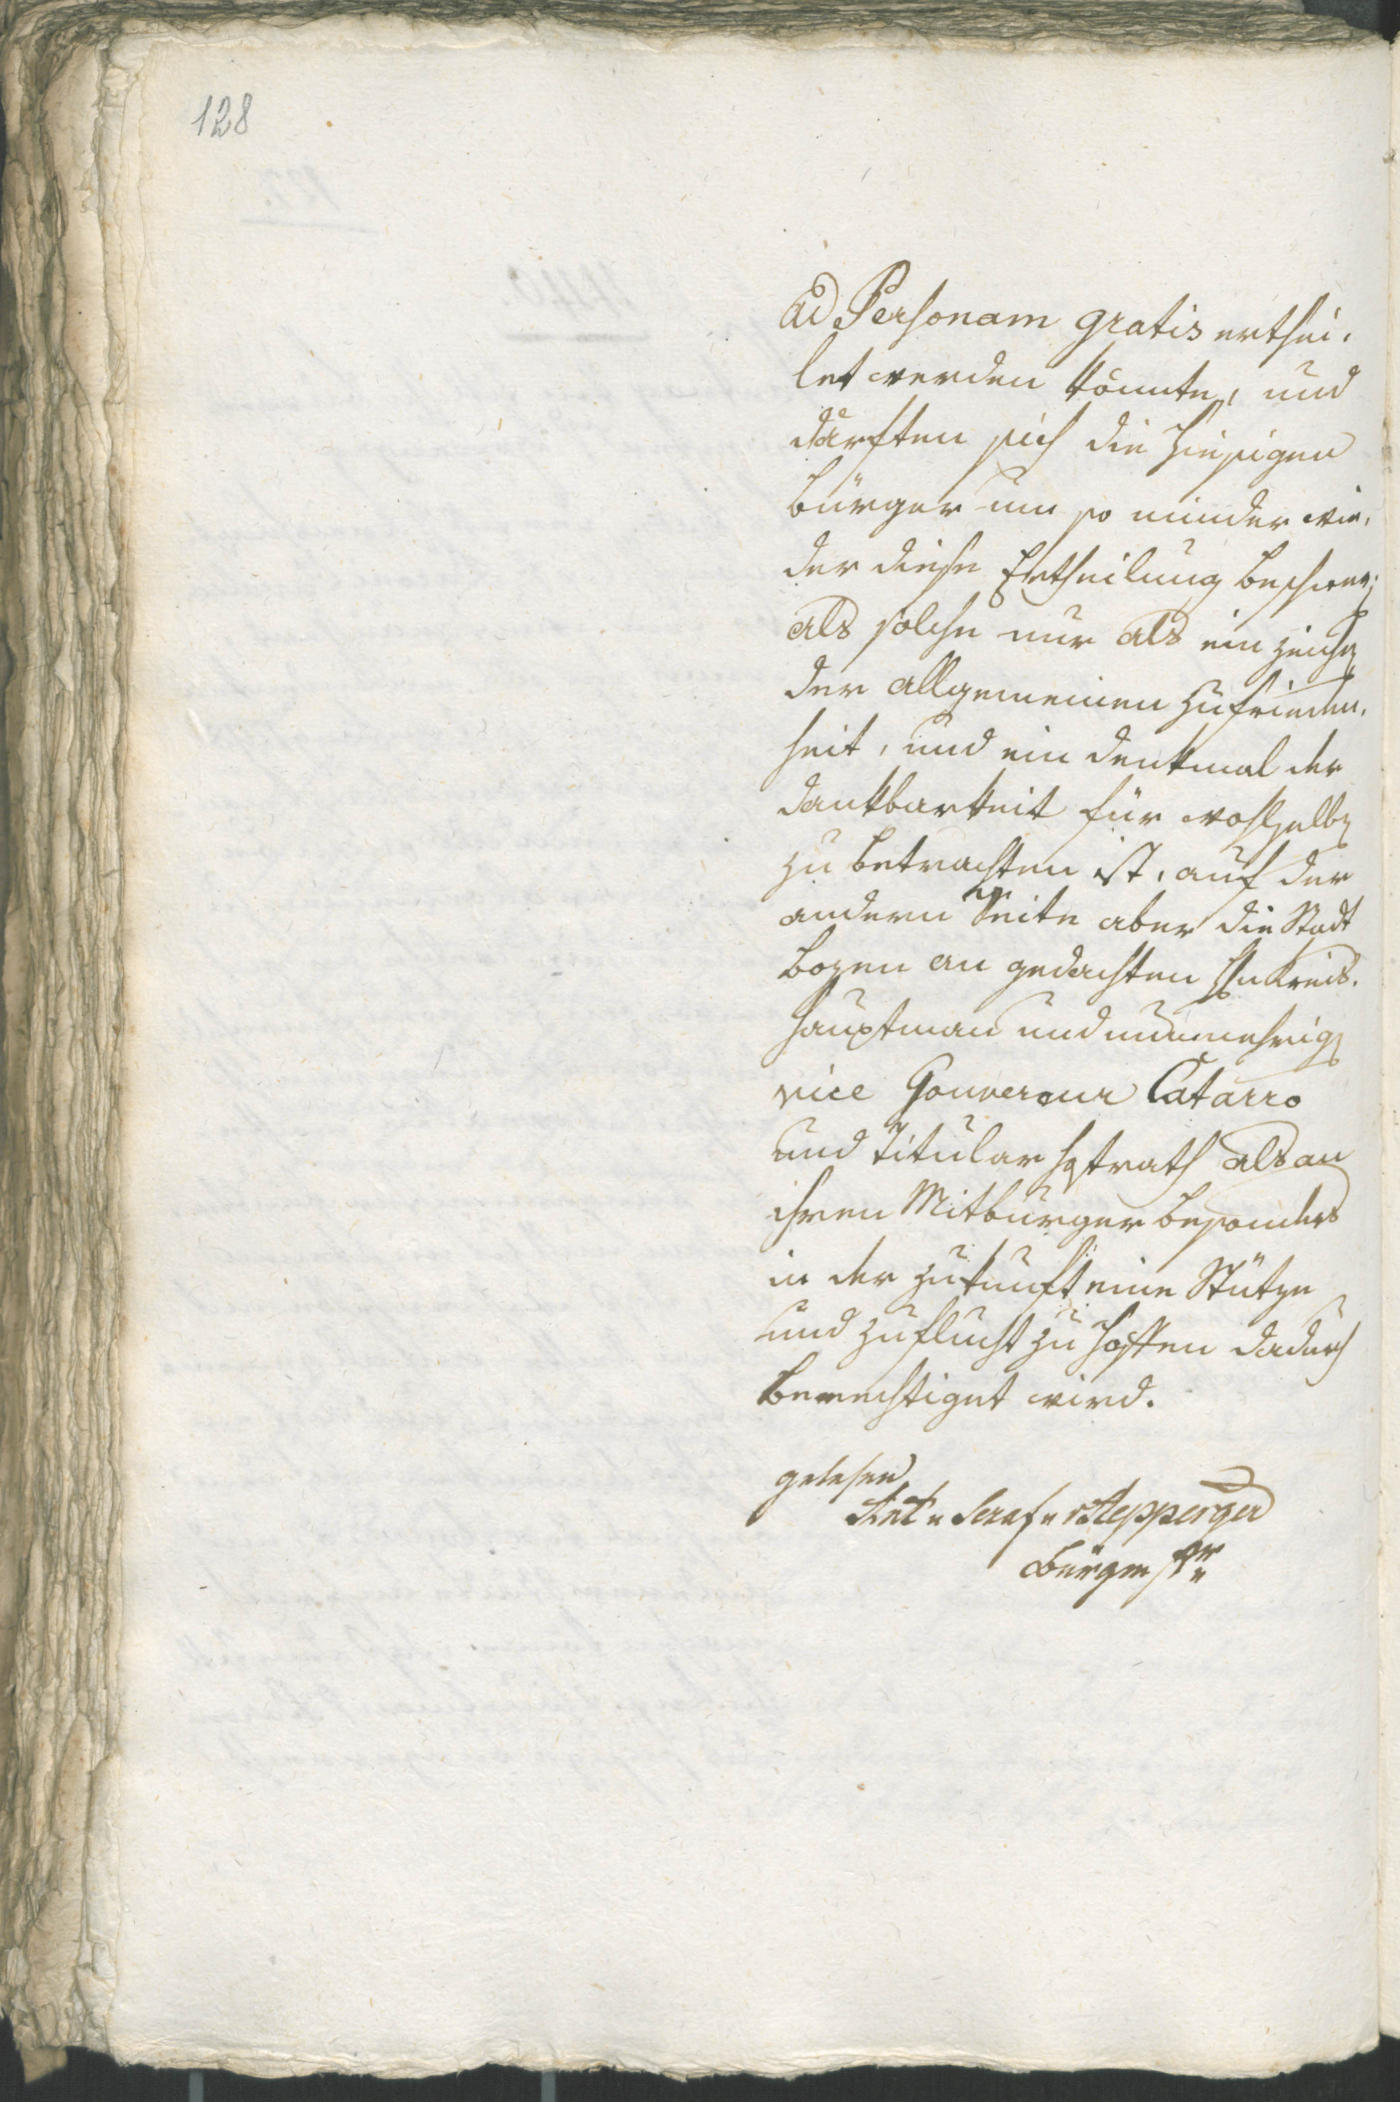 128
Ad Personam gratis erthei,
let werden könnte, und
därften sich die hiesigen
Bürger um so minder wie,
der diese Ertheilung beschwer,
als solche nur als ein Zeichen
der allgemeinen Zufrieden,
heit, und ein Denkmal der
Dankbarkeit für wohlselben
zu betrachten ist, auf der
andern Seite aber die Stadt
Bozen an gedachten Hn Kreis,
hauptman und nunmehrigen
vice Gouverour Catarro
und Titular Hofrath als an
ihren Mitbürger besonders
in der Zukunft eine Stütze
und Zuflucht zu hoffen dadurch
berechtiget wird.
gelesen
Ant: Seraf: v Hepperger
Bürgmstr: